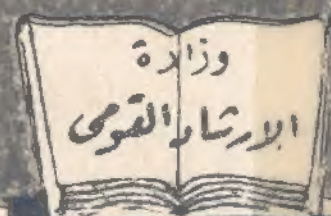 وزارة
الإرشاد القومى